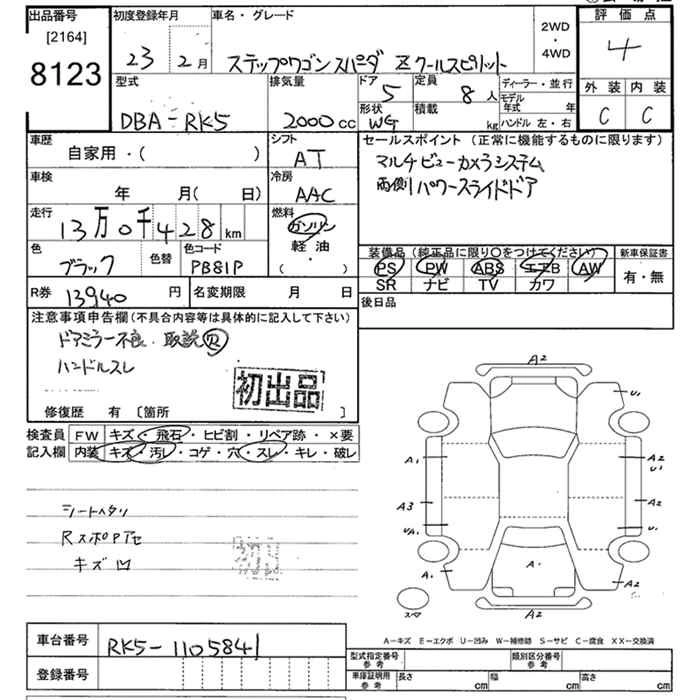 出品番号
[2164]
8123
初度登録年月
23 2月
車名・グレード
ステップワゴン スパーダ Z クールスピリット
2WD
・
4WD
評価点
4
外装 内装
C C
型式
DBA-RK5
排気量
2000cc
ドア
5
定員
8人
形状
WG
積載
kg
ディーラー・並行
モデル年式 年
ハンドル 左・右
車歴
自家用・( )
シフト
AT
車検
年 月( 日)
冷房
AAC
走行
13万0千428km
燃料
ガソリン
軽油
・( )
色
ブラック
色替
色コード
PB81P
R券 13940円
名変期限 月 日
セールスポイント (正常に機能するものに限ります)
マルチビューカメラシステム
両側パワースライドドア
装備品(純正品に限り〇をつけてください)
PS PW ABS エアB AW
SR ナビ TV カワ
新車保証書
有・無
後日品
注意事項申告欄(不具合内容等は具体的に記入して下さい)
ドアミラー不良 取説R
ハンドルスレ
初出品
修復歴 有〔箇所 〕
検査員記入欄
FW キズ・飛石・ヒビ割・リペア跡・×要
内装 キズ・汚レ・コゲ・穴・スレ・キレ・破レ
シートヘタリ
RスポPアセ
キズ凹
初
A2
U1
A1
A2
U1
A3
A2
UA1
U1
A1
A・
A2
スペア
A2
A-キズ E-エクボ U-凹み W-補修跡 S-サビ C-腐食 XX-交換済
車台番号
RK5-1105841
登録番号
型式指定番号
参考
類別区分番号
参考
車庫証明用
参考
長さ cm
幅 cm
高さ cm